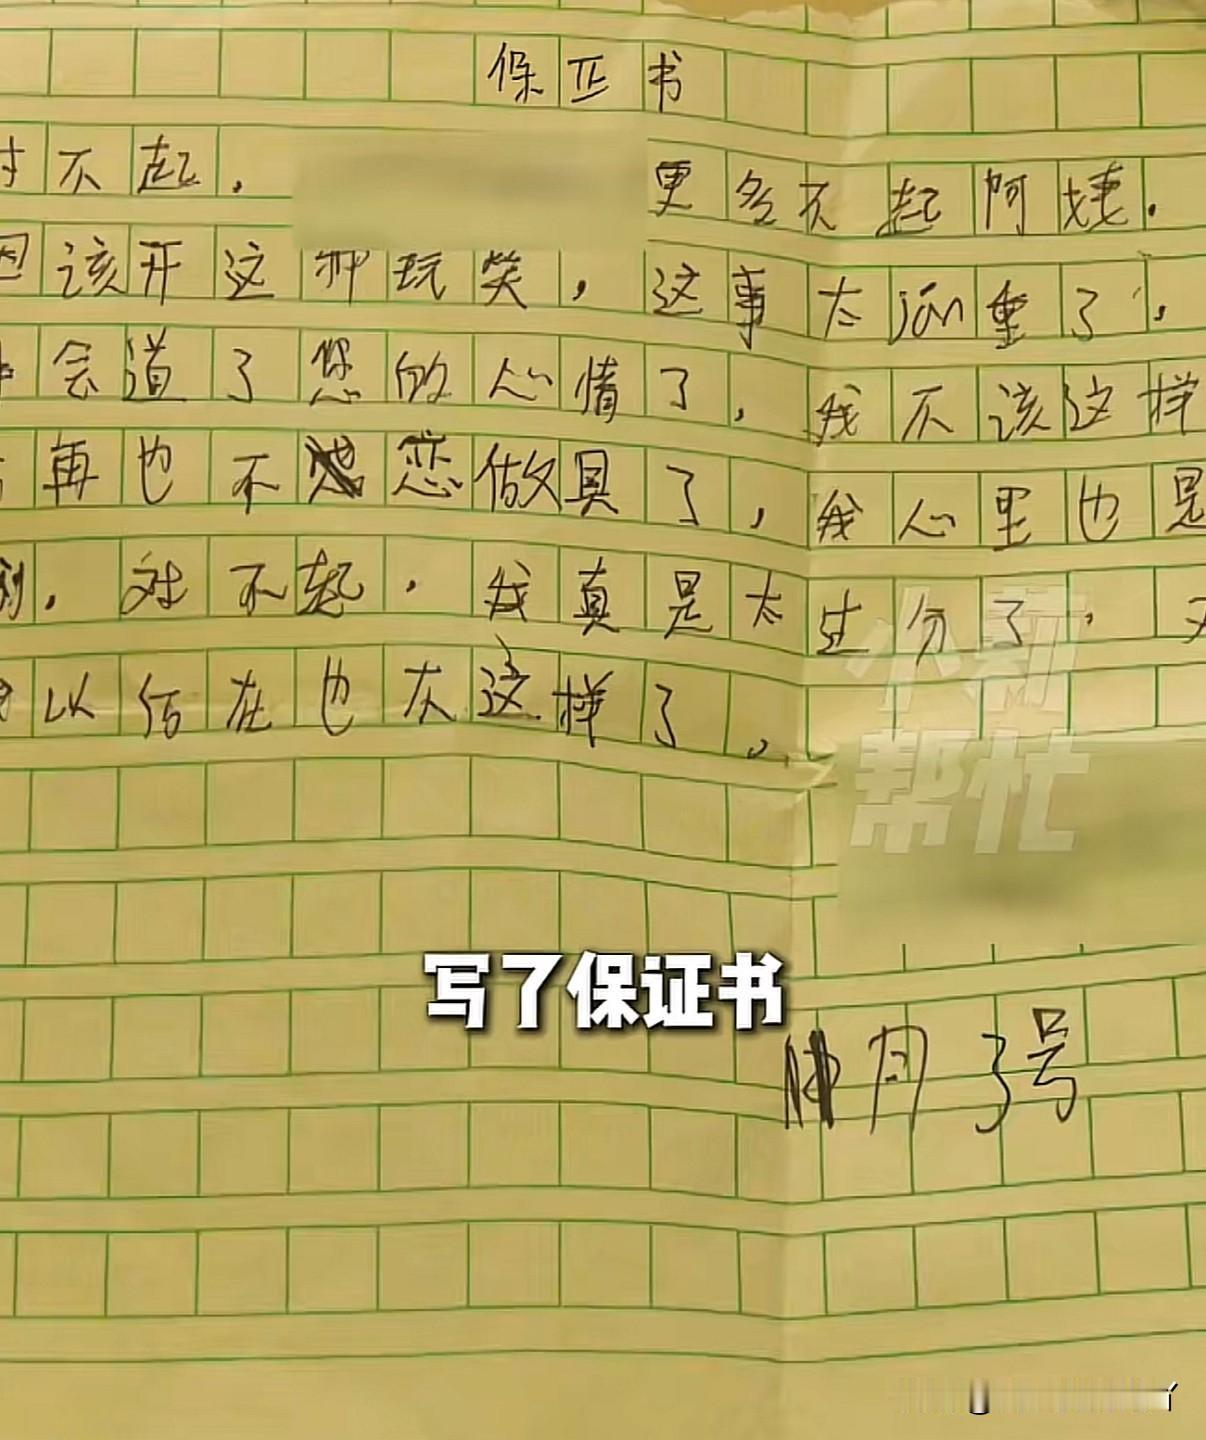 保正书
对不起，更多不起阿姨。
因该开这种玩笑，这事太ián重了，
会道了您的心情了，我不该这样
再也不恶做具了，我心里也是
，对不起。我真是太过分了，
以后在也不这样了。
小莉
帮忙
写了保证书
月3号